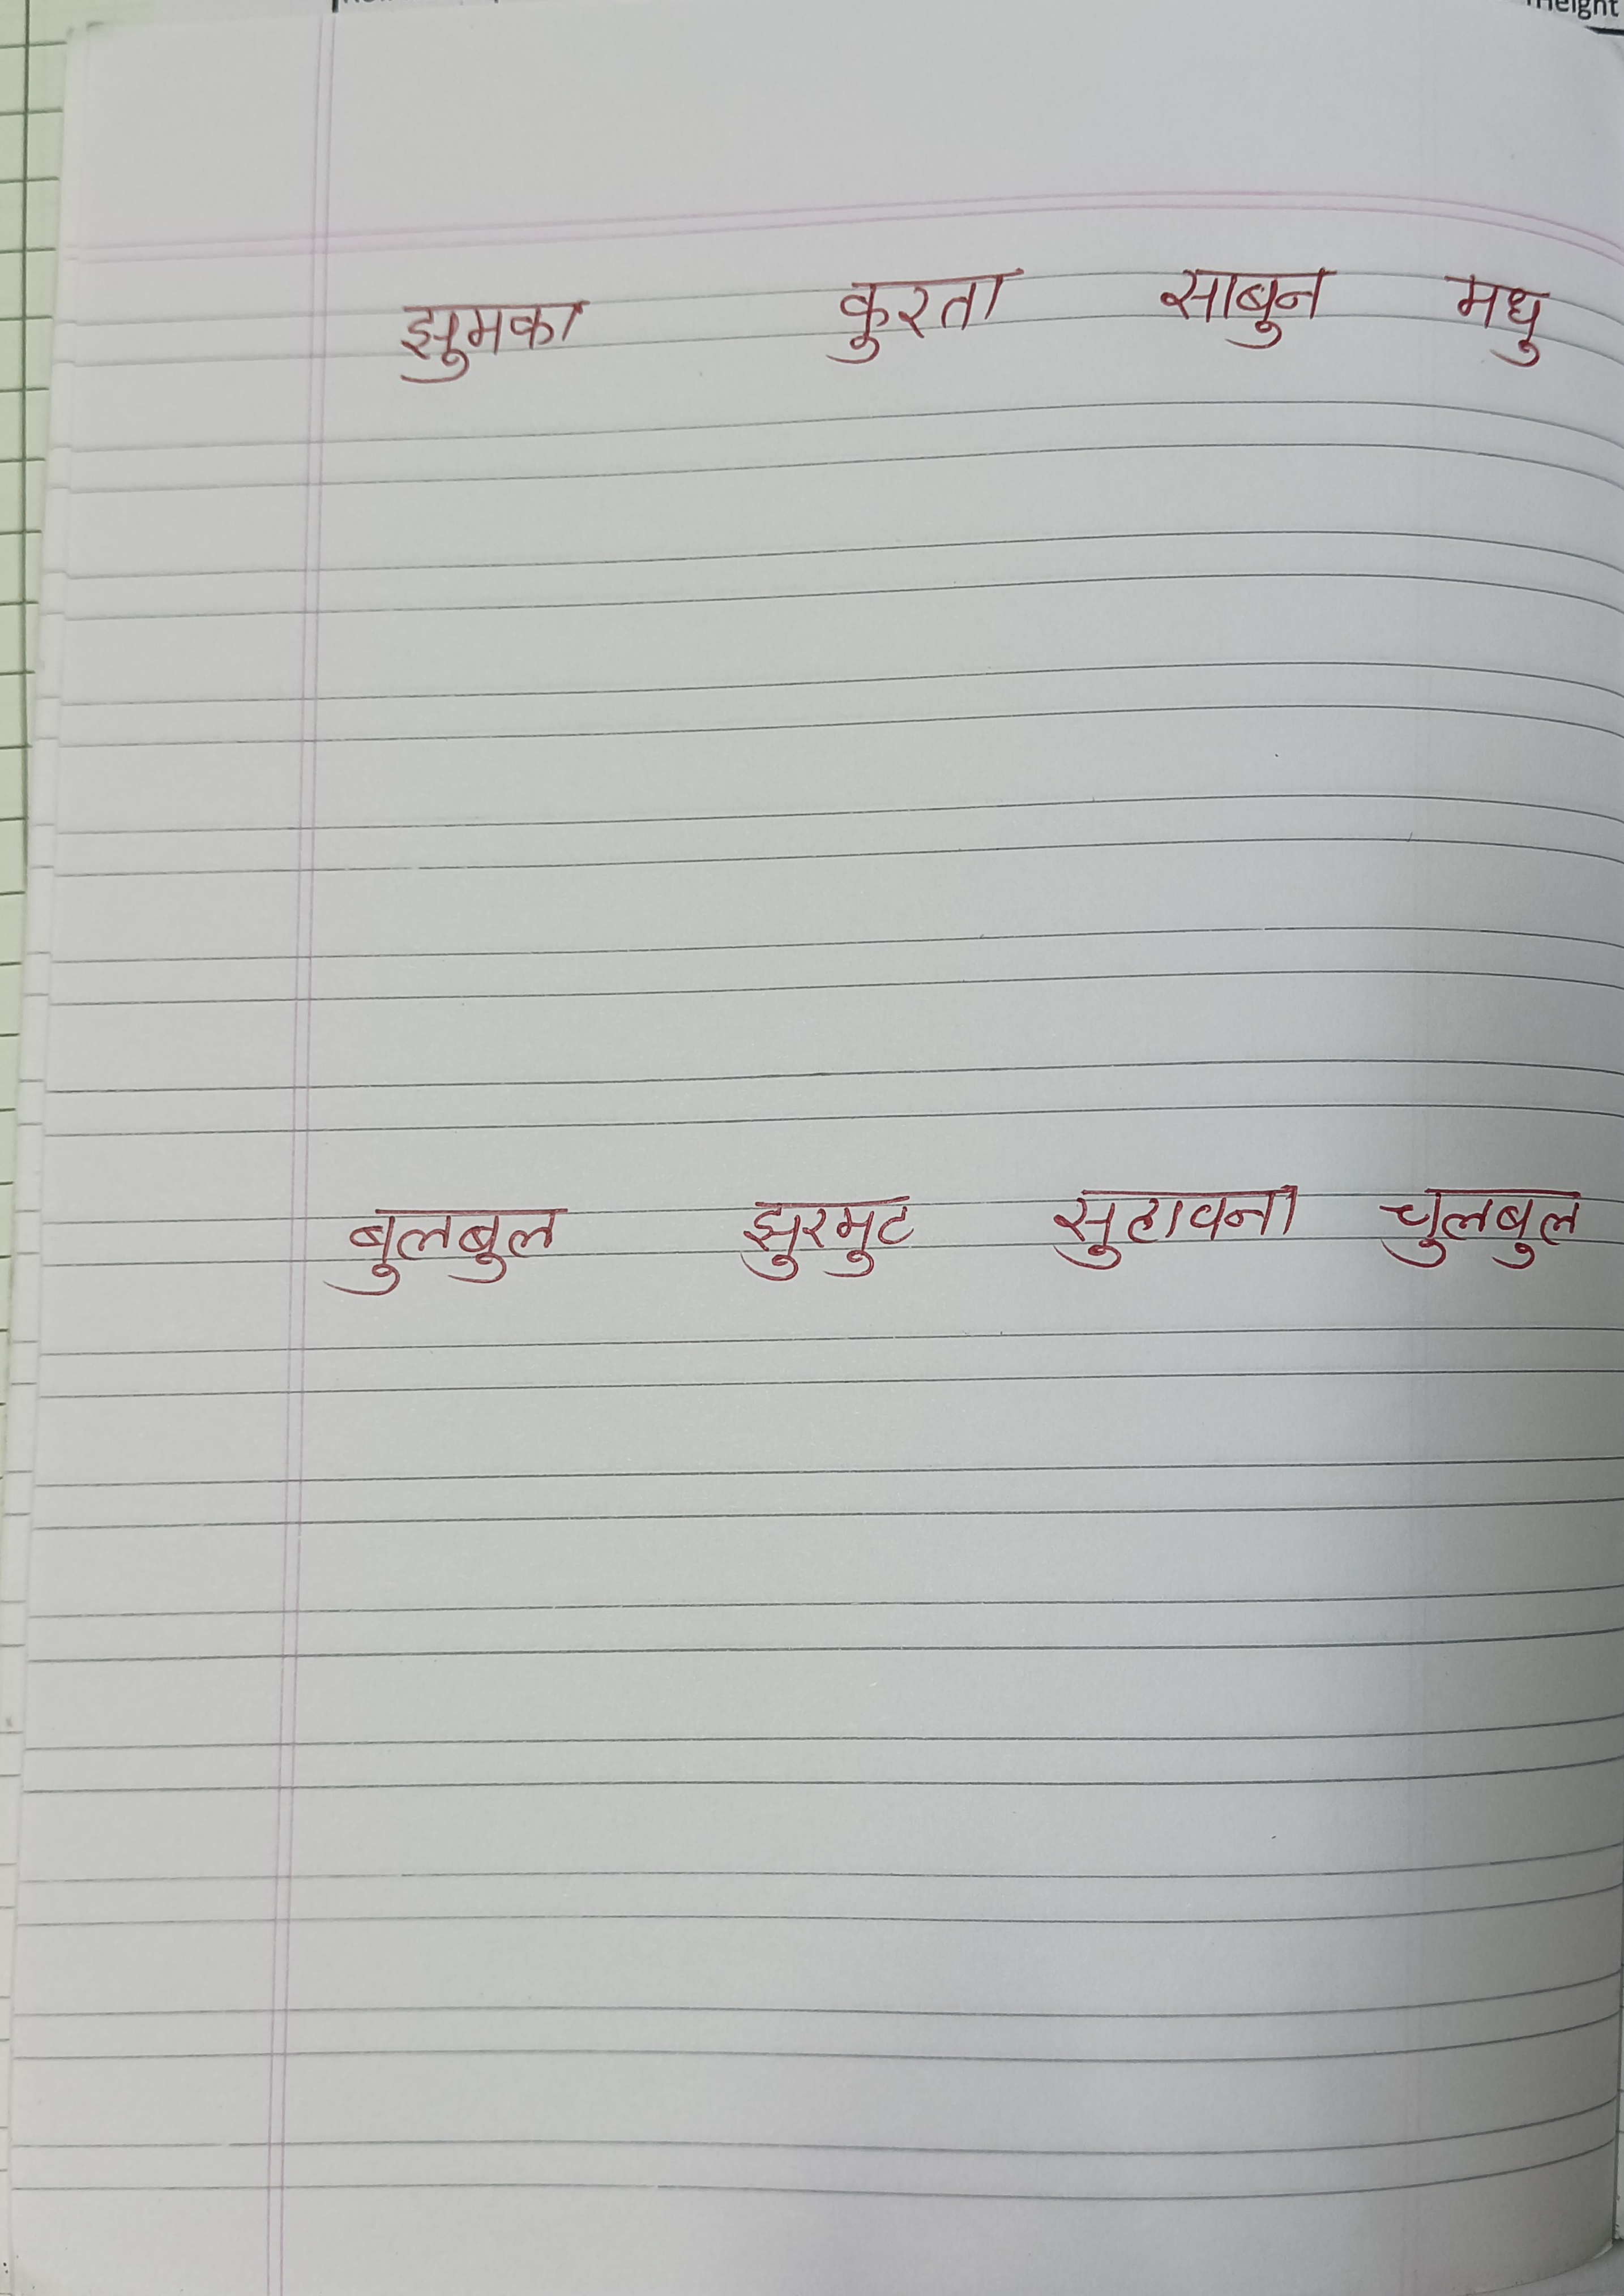 Height
झुमका कुरता साबुन मधु
बुलबुल झुरमुट सुहावना चुलबुल